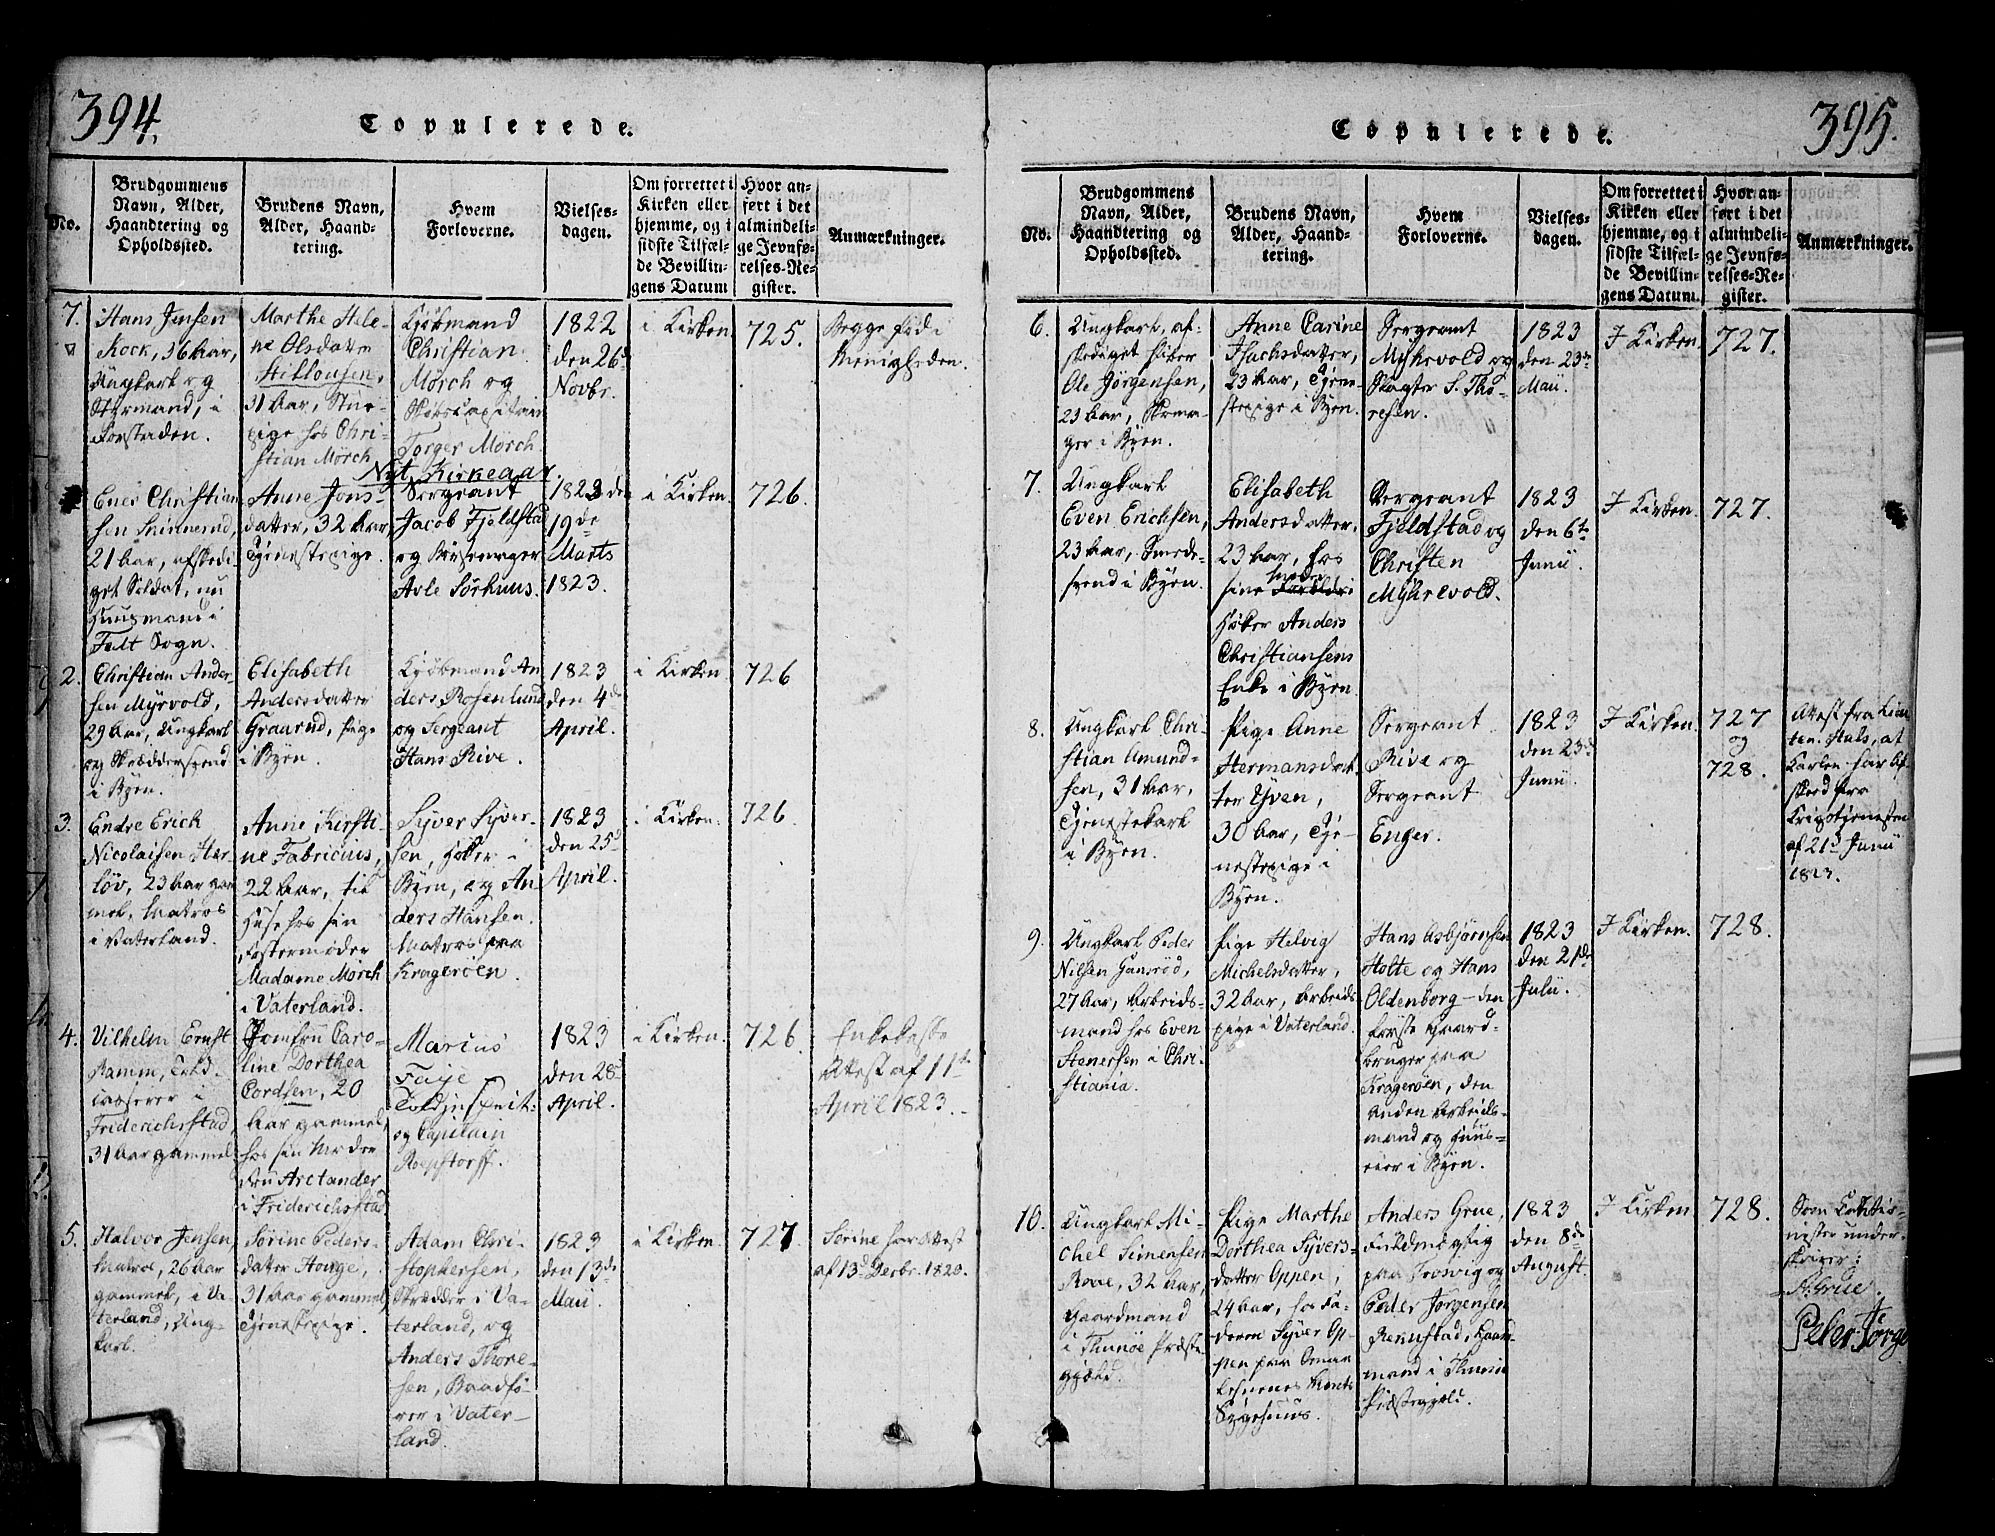 394.
Copulerede.
No.
Brudgommens
Navn, Alder,
Haandtering og
Opholdssted.
Brudens Navn,
Alder, Haand-
tering.
Hvem
Forloverne.
Vielses-
dagen.
Om forrettet i
Kirken eller
hjemme, og i
sidste Tilfæl-
de Bevillin-
gens Datum
Hvor an-
ført i det
almindeli-
ge Jevnfø-
relses-Re-
gister.
Anmærkninger.
7.
Hans Jensen
Kock, 36 Aar,
Ungkarl og
Styrmand, i
Forstaden.
Marthe Hele-
ne Olsdatter
31 Aar, Stue-
pige hos Chri-
stian Mørch
Kjøbmand
Christian
Mørch og
Skibscapitain
Torger Mørch
1822
den 26
Novbr.
i Kirken
725.
Begge fød i
Menigheden.
Nyt Kirkeaar.
Christian
sen
21 Aar, afskedi-
get Soldat, nu
Huusmand i
Sogn.
Anne Jons-
datter, 32 Aar,
Tjenestepige.
Sergeant
Jacob Fjeldstad
og
Sørhuus.
1823 den
19de
Marts
1823.
i Kirken.
726.
2.
Christian Ander-
sen Myrvold,
29 Aar, Ungkarl
og Skræddersvend
i Byen.
Elisabeth
Andersdatter
Graarud, Pige
i Byen.
Kjøbmand An
ders Rosenlund
og Sergeant
Hans Rive.
1823
den 4de
April.
i Kirken.
726
3.
Endre Erich
Nicolaisen Her
løv, 23 Aar gam
mel, Matros
i Vaterland.
Anne Kirsti-
ne Fabricius,
22 Aar, til
Huse hos sin
Fostermoder
Madame Mørch
i Vaterland.
Syver Syver-
sen, Høker i
Byen, og An
ders Hansen.
Matros paa
Kragerøen.
1823
den 25d
April.
i Kirken.
726.
4.
Vilhelm Ernst
Ramm, Told-
casserer i
Friderichsstad,
31 Aar gammel
Jomfru Caro-
line Dorthea
Cordsen, 20
Aar gammel,
hos sin Moder
Fru Arctander
i Friderichsstad
Marius
Faye
Toldinspect:
og Capitain
Roepstorff.
1823
den 28
April.
i Kirken.
726.
Attest af 11te
April 1823.
5.
Halvor Jensen,
Matros, 26 Aar
gammel, i Va
terland, Ung-
karl.
Sørine Peders-
datter Houge,
31 Aar gammel,
Tjenestepige.
Adam Chri-
stophersen,
Skrædder i Va-
terland, og
Anders Thore-
sen, Baadfø-
rer i Vater-
land.
1823
den 13de
Maii.
i Kirken
727
Sørine har Attest
af 13d Decbr. 1820.
395.
Copulerede.
No.
Brudgommens
Navn, Alder,
Haandtering og
Opholdssted.
Brudens Navn,
Alder, Haand-
tering.
Hvem
Forloverne.
Vielses-
dagen.
Om forrettet i
Kirken eller
hjemme, og i
sidste Tilfæl-
de Bevillin-
gens Datum.
Hvor an-
ført i det
almindeli-
ge Jevnfø-
relses-Re-
gister.
Anmærkninger.
6.
Ungkarl, af-
skediget
Ole Jørgensen,
23 Aar, Skoma-
ger i Byen.
Anne Carine
Isachsdatter,
23 Aar, Tjene-
stepige i Byen.
Sergeant
Myhrvold og
Slagter S. Tho-
resen.
1823
den 23de
Maii.
I Kirken.
727.
7.
Ungkarl
Even Erichsen,
23 Aar, Smede-
svend i Byen.
Elisabeth
Andersdatter,
23 Aar, hos
sine
Høker Anders
Christiansens
Enke i Byen.
Sergeant
Fjeldstad og
Christen
Myhrevold.
1823
den 6te
Junii.
I Kirken.
727.
8.
Ungkarl Chri-
stian Amund-
sen, 31 Aar,
Tjenestekarl
i Byen.
Pige Anne
Hermansdat-
ter Yven,
30 Aar, Tje-
nestepige i
Byen.
Sergeant
Rive og
Sergeant
Enger.
1823
den 23d
Junii.
I Kirken.
727
og
728.
Attest fra Lieu
ten. Hals, at
Karlen har Af-
skeed fra
Krigstjenesten
af 21d Junii
1823.
9.
Ungkarl Peder
Nilsen
27 Aar, Arbeids-
mand hos Even
Stenersen i Chri-
stiania.
Pige Helvig
Michelsdatter,
32 Aar, Arbeids
pige i Vaterland.
Hans Asbjørnsen
Holte og Hans
Oldenborg - den
første Gaard-
bruger paa
Kragerøen, den
anden Arbeids-
mand og Huus-
eier i Byen.
1823
den 21de
Julii.
I Kirken.
728.
10.
Ungkarl Mi-
chel Simensen
Rove, 32 Aar,
Gaardmand
i Thunøe Præste-
gjeld.
Pige Marthe
Dorthea Syvers-
datter Oppen,
24 Aar, hos Fa-
deren Syver Op-
pen paa
Anders Grue,
Fuldmægtig
paa Trosvig og
Peder Jørgensen
Gaard-
mand i Thunøe
Præstegjeld.
1823
den 8de
August.
I Kirken
728.
Som
under-
skriver:
A. Grue.
Peter Jørge